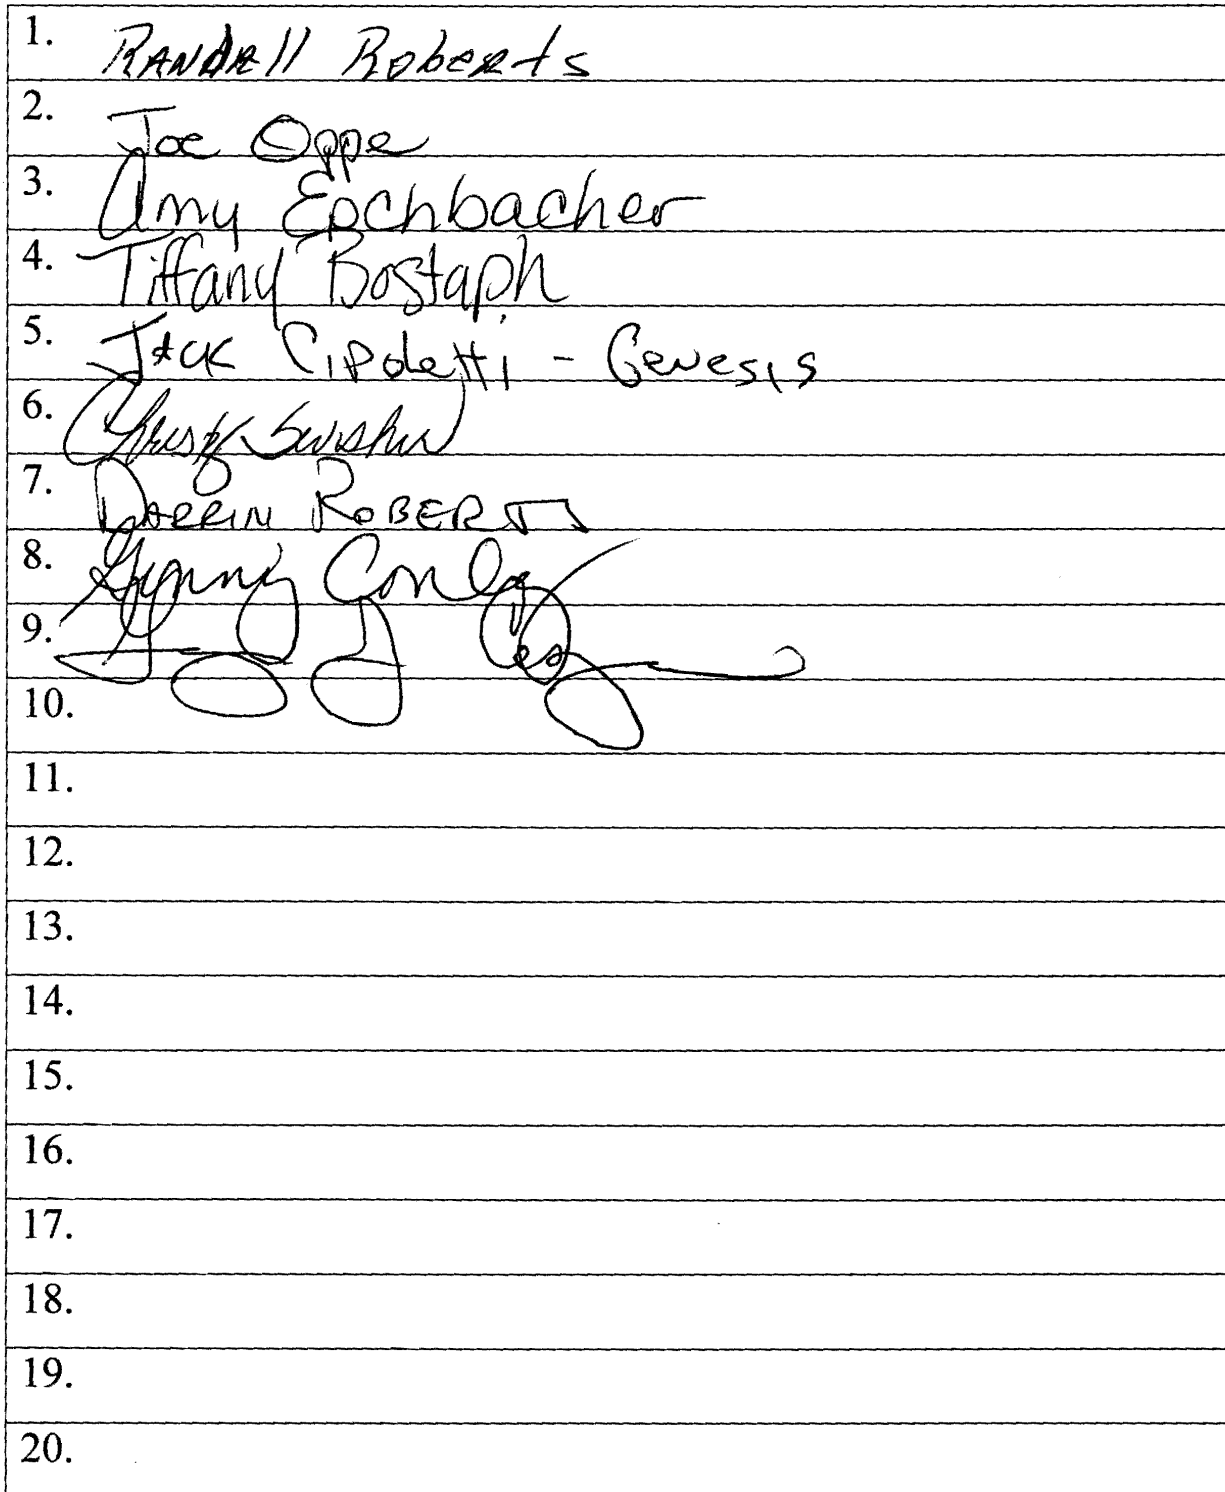 1. RANDAll Roberts
2. Joe Oppe
3. Amy Eschbacher
4. Tiffany Bostaph
5. Jack Cipoletti - Genesis
6. Christy
7. DARRIN ROBERTS
8. Gynny Conley
9.
10.
11.
12.
13.
14.
15.
16.
17.
18.
19.
20.